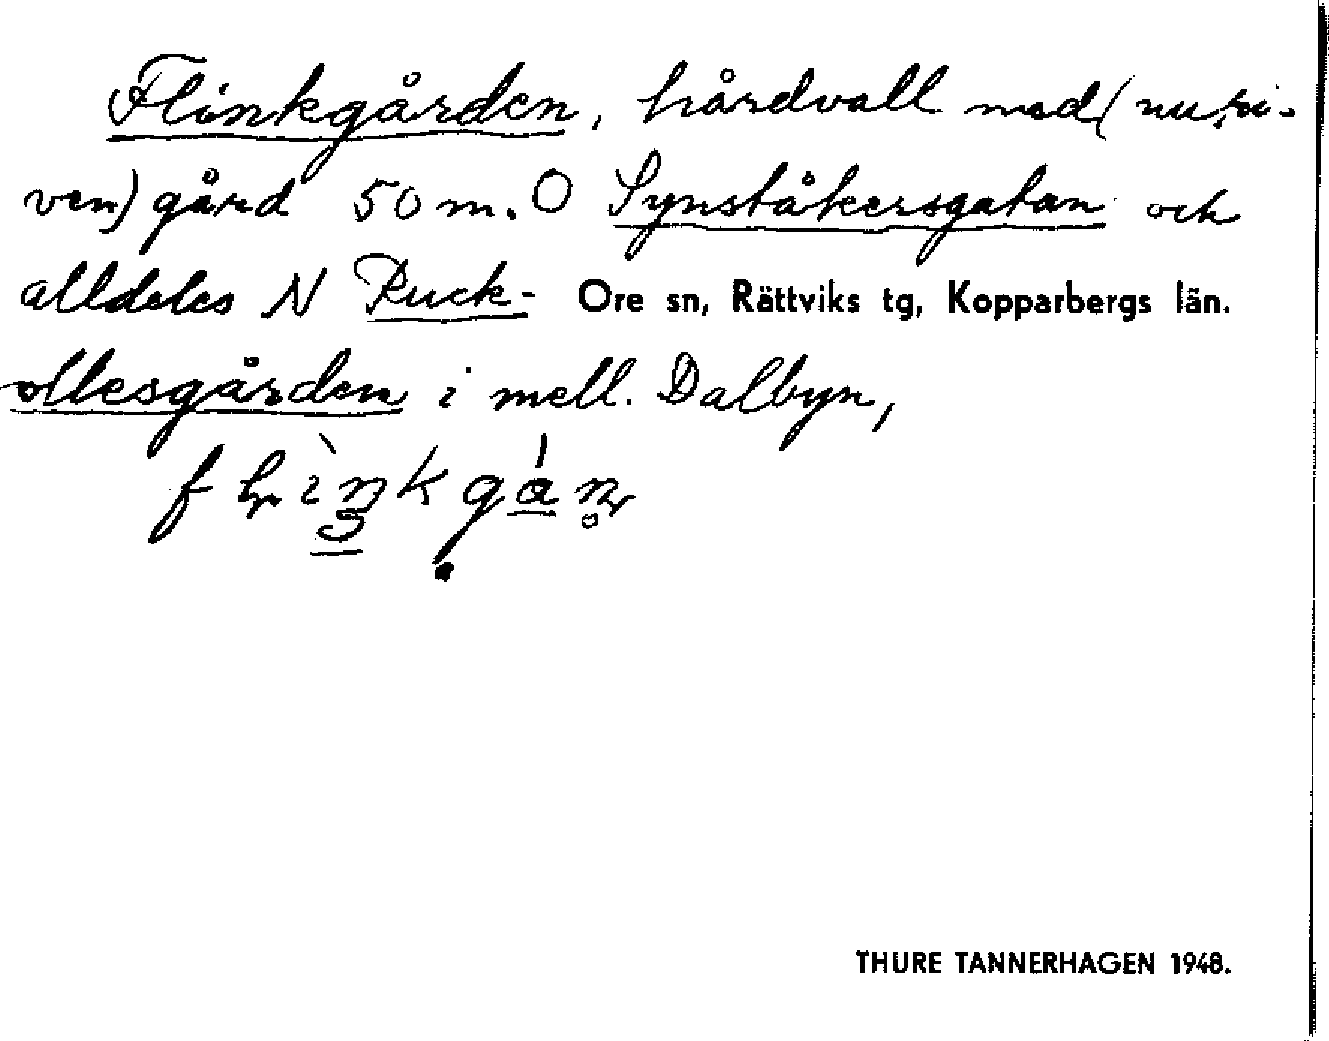 Flinkgården, hårdvall med (nu ri-
ven) gård 50 m. O Synståkersgatan och
alldeles N Ruck- Ore sn, Rättviks tg, Kopparbergs län.
ollesgården i mell. Dalbyn,
THURE TANNERHAGEN 1948.